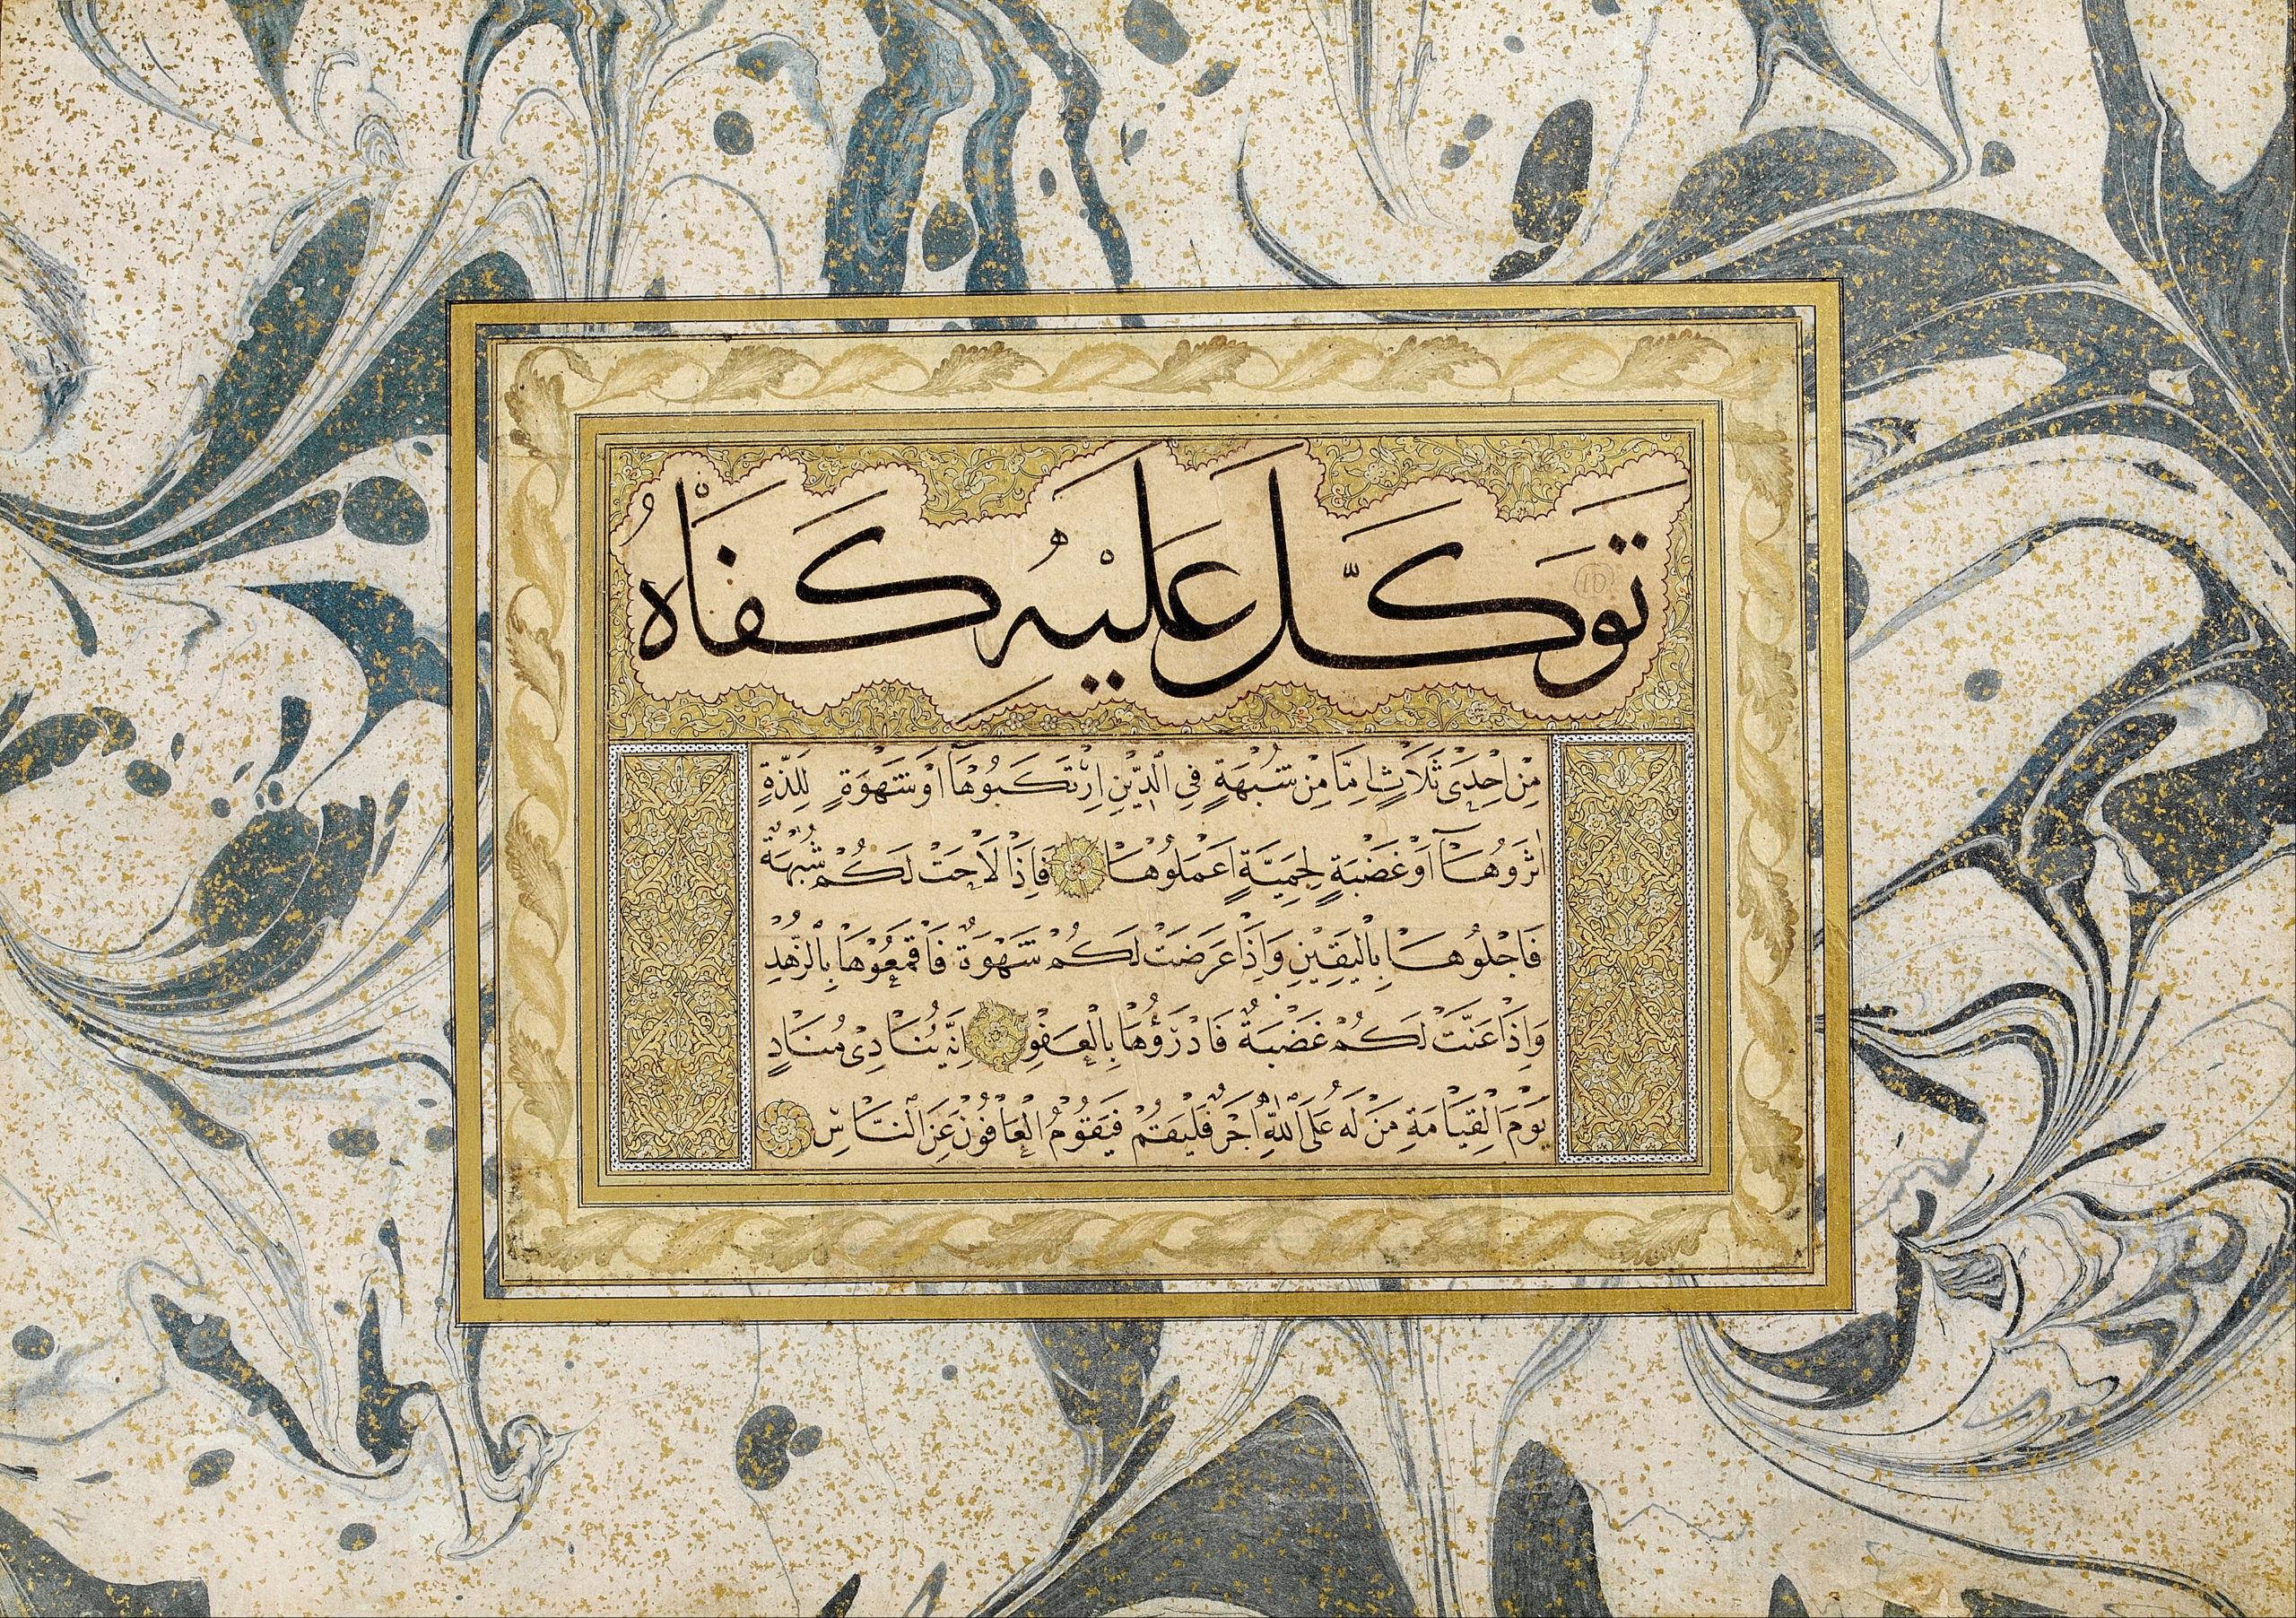 تَوَكَّلَ عَلَيْهِ كَفَاهُ
مِنْ اِحْدَى ثَلَاثٍ اِمَّا مِنْ شُبْهَةٍ فِي الدِّيْنِ اِرْتَكَبُوْهَآ اَوْ شَهْوَةٍ لِلَذَّةٍ
اٰثَرَوُهَآ اَوْ غَضْبَةٍ لِحَمِيَّةٍ اَعْمَلُوْهَا فَاِذَا لَاحَتْ لَكُمْ شُبْهَةٌ
فَاجْلُوُهَا بِالْيَقِيْنِ وَاِذَا عَرَضَتْ لَكُمْ شَهْوَةٌ فَاقْمَعُوْهَا بِالزُّهْدِ
وَاِذَا عَنَّتْ لَكُمْ غَضْبَةٌ فَادْرَؤُهَا بِالْعَفْوِ اِنَّهُ يُنَادِىْ مُنَادٍ
يَوْمَ الْقِيَامَةِ مَنْ لَهُ عَلَى اللّٰهِ اَجْرٌ فَلْيَقُمْ فَيَقُوْمُ الْعَافُوْنَ عَنِ النَّاسْ